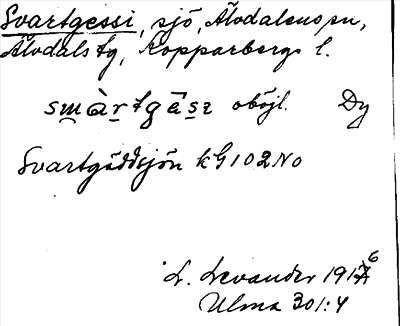 Svartgessi, sjö, Älvdalens sn,
Älvdals tg, Kopparbergs l.
oböjl. Dy
Svartgäddsjön kG102NO
L. Levander 1916
Ulma 301:4